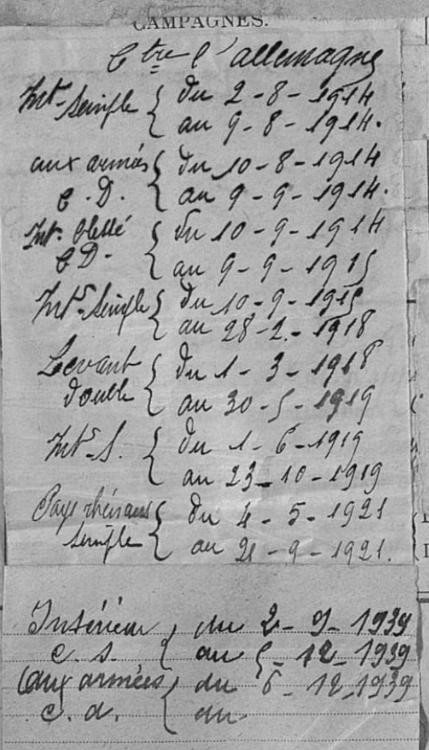 CAMPAGNES.
Ctre l'allemagne
Int. simple { du 2-8-1914
au 9-8-1914.
aux armées { du 10-8-1914
C.D. au 9-9-1914.
Int. blessé { du 10-9-1914
CD. au 9-9-1915
Intr simple { du 10-9-1915
au 28-2-1918
Levant { du 1-3-1918
double au 30-5-1919
Intr S. { du 1-6-1919
au 23-10-1919
Pays rhénans { du 4-5-1921
simple au 21-9-1921.
Intérieur { du 2-9-1939
C.S. au 5-12-1939
aux armées { du 6-12-1939
C.d. au